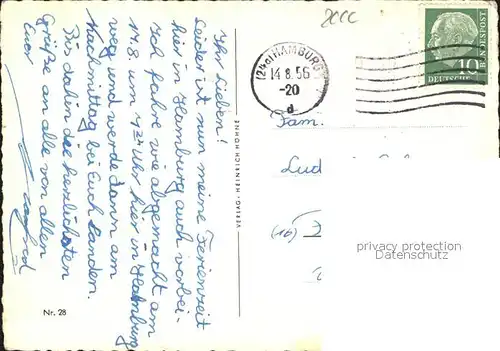 Ihr Lieben!
Leider ist nun meine Ferienzeit
hier in Hamburg auch vorbei-
Ich fahre wie abgemacht am
17.8. um 4 34 Uhr hier in Hamburg
weg und werde dann am
Nachmittag bei Euch landen.
Bis dahin die herzlichsten
Grüße an alle von allen
Euer
Nr. 28
VERLAG - HEINRICH HÖHNE
(24a) HAMBURG
14.8.56
-20
d
10
DEUTSCHE
BUNDESPOST
Fam.
(16)
privacy protection
Datenschutz